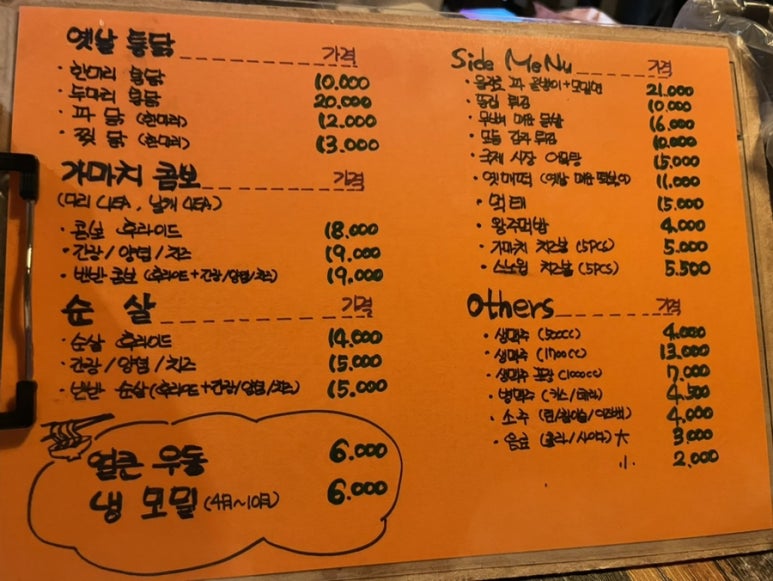 옛날 통닭 가격
· 한마리 통닭 10.000
· 두마리 통닭 20.000
· 파 닭 (한마리) 12.000
· 찜 닭 (한마리) 13.000
가마치 콤보 가격
(다리 4EA, 날개 4EA)
· 콤보 후라이드 18.000
· 간장/양념/치즈 19.000
· 반반 콤보 (후라이드+간장/양념/치즈) 19.000
순 살 가격
· 순살 후라이드 14.000
· 간장/양념/치즈 15.000
· 반반 순살 (후라이드+간장/양념/치즈) 15.000
얼큰 우동 6.000
냉 모밀 (4月~10月) 6.000
Side MeNu 가격
· 파 골뱅이+모밀면 21.000
· 튀김 10.000
· 16.000
· 모듬 감자튀김 10.000
· 국제 시장 오뎅탕 15.000
· 11.000
· 먹태 15.000
· 왕주먹밥 4.000
· 가마치 치즈볼 (5PCS) 5.000
· 치즈볼 (5PCS) 5.500
Others 가격
· 생맥주 (500CC) 4.000
· 생맥주 (1700CC) 13.000
· 생맥주 포장 (1000CC) 7.000
· 병맥주 (카스/테라) 4.500
· 소주 4.000
· 음료 (콜라/사이다) 大 3.000
小 2.000